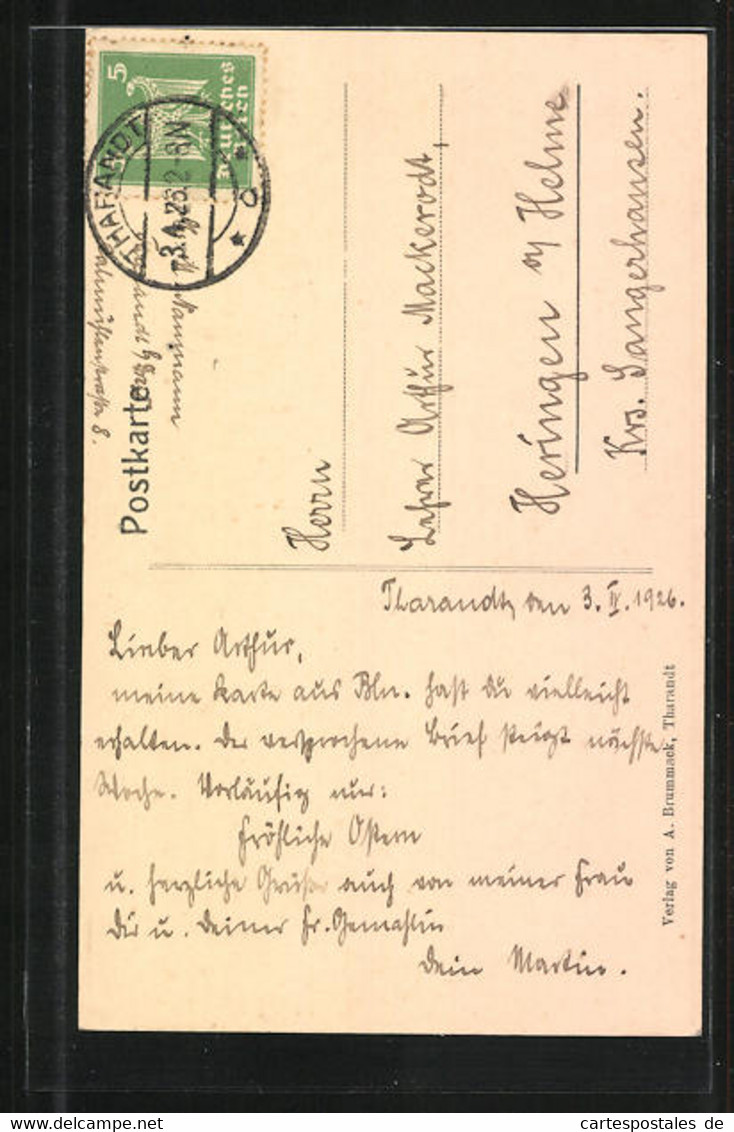 5
Deutsches Reich
THARANDT
3.4.26.2-3N
Postkarte
Naumann
8.
Herrn
Lehrer Arthur Mackerodt,
Heringen a/ Helme
Krs. Sangerhausen.
Tharandt, den 3. IV. 1926.
Lieber Arthur,
meine Karte aus Bln. hast du vielleicht
erhalten. Der versprochene Brief steigt nächste
Woche. Vorläufig nur:
Fröhliche Ostern
u. herzliche Grüße auch von meiner Frau
Dir u. Deiner Fr. Gemahlin
Dein Martin.
Verlag von A. Brummack, Tharandt
www.cartespostales.de
cartespostales.de